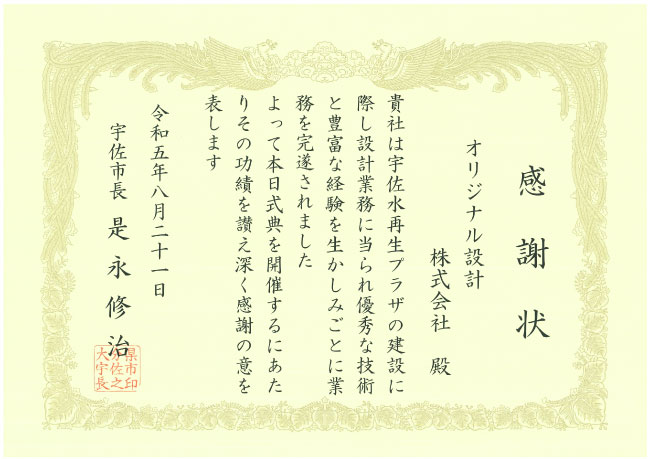 感謝状
オリジナル設計
株式会社 殿
貴社は宇佐水再生プラザの建設に
際し設計業務に当られ優秀な技術
と豊富な経験を生かしみごとに業
務を完遂されました
よって本日式典を開催するにあた
りその功績を讃え深く感謝の意を
表します
令和五年八月二十一日
宇佐市長 是永修治
県市印
分佐之
大宇長